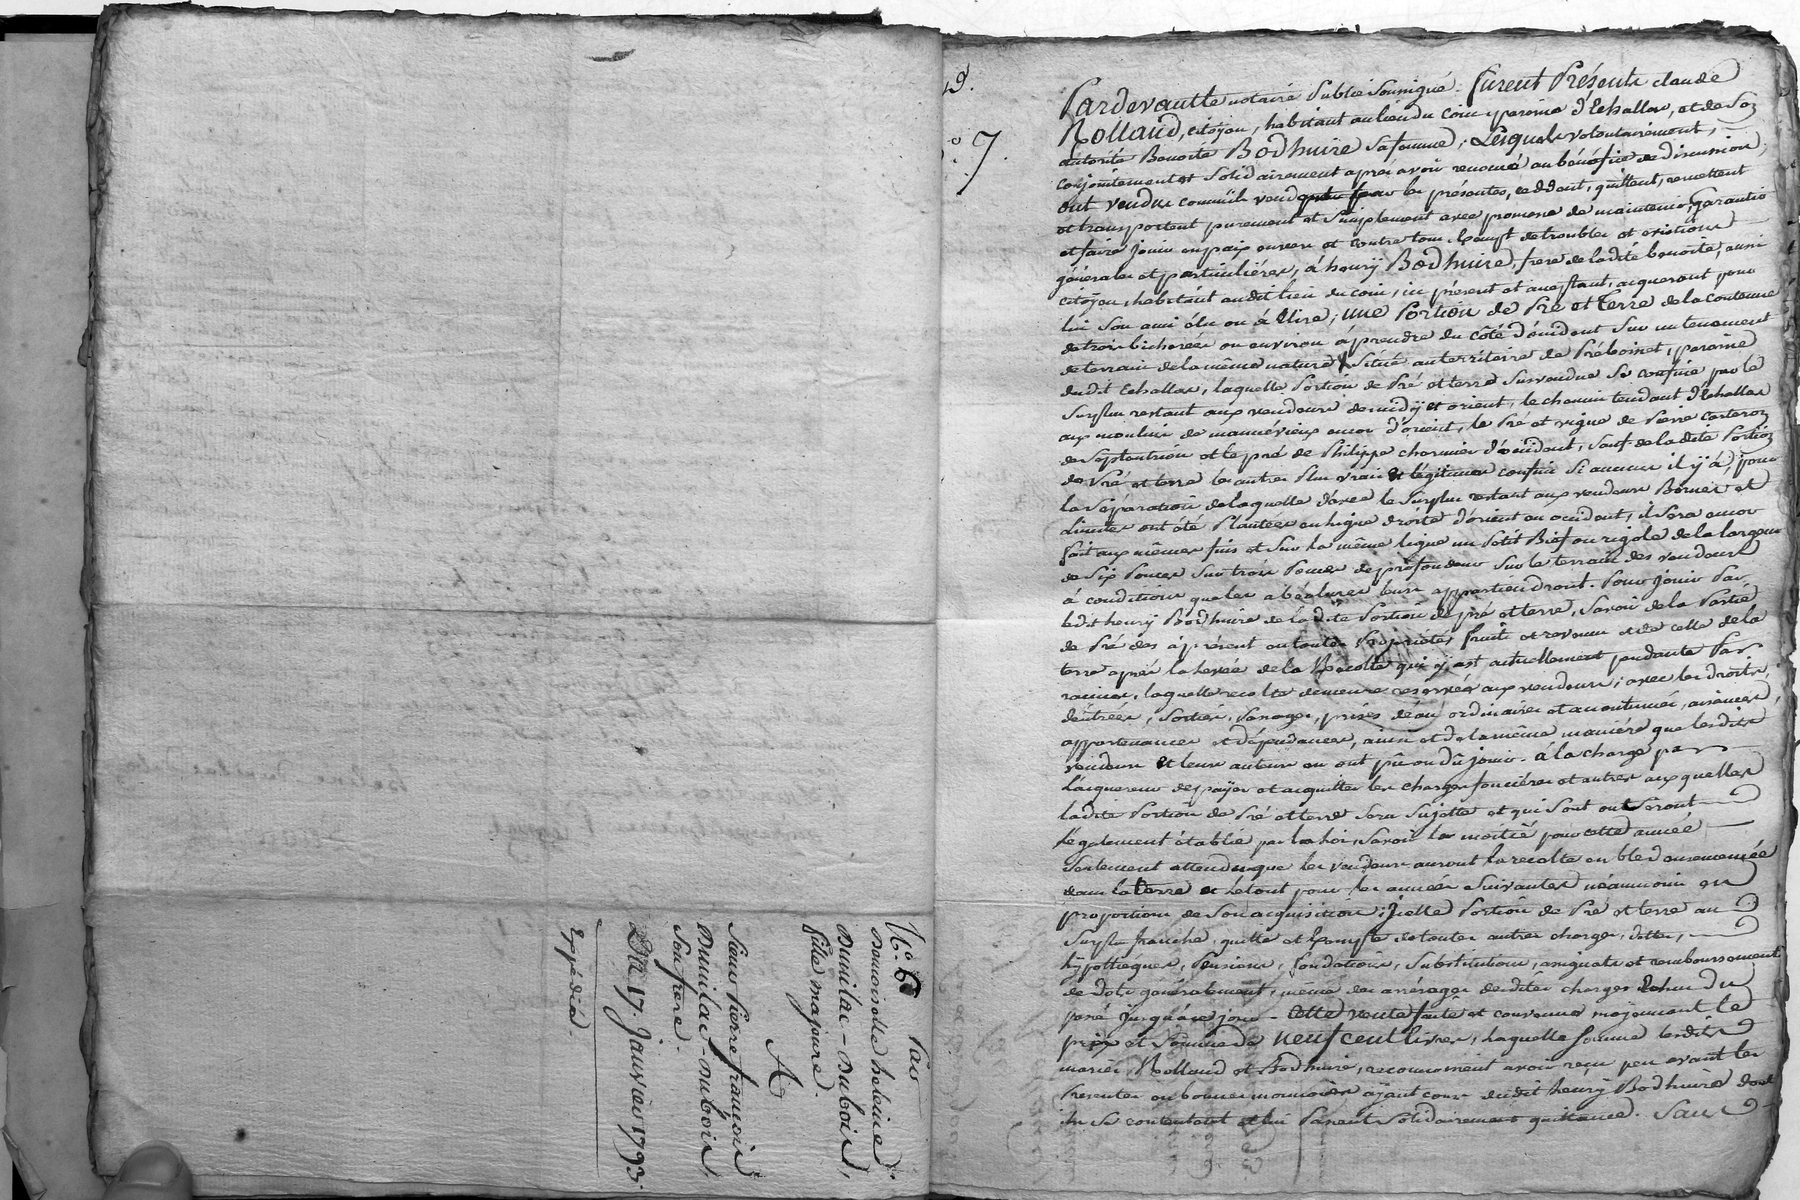 N.° 6
Par
Demoiselle heleine
Dumilac-Dubois,
fille majeure.
A
Sieur Pierre françois
Dumilac-Dubois,
Son frere.
Du 17. Janvier 1793.
Expédié.
19.
7.
Pardevant le notaire Public Soussigné. furent Présents claude
Rolland, citoyen, habitant au lieu du coin paroisse d'Echallas, et de Son
autorité Benoite Bodhuire Sa femme, Lesquels volontairement,
conjointement et Solidairement après avoir renoncé au bénéfice de discussion,
ont vendu comm'ils vendent par les présentes, cèddent, quittent, remettent
et transportent purement et Simplement avec promesse de maintenir, garantie
et faire jouir en paix envers et contre tous Exempt de troubles et évictions
générales et particulières, à henrÿ Bodhuire, frere de ladite benoite, aussi
citoyen, habitant audit lieu du coin, ici présent et acceptant, acquerant pour
lui Son ami élu ou à Elire, une Portion de Pré et terre de la contenue
de trois bicherées ou environ à prendre du côté d'occident Sur un tenement
de terrain de la même nature Situé au territoire de Préboinet, paroisse
dudit Echallas, laquelle Portion de Pré et terre Susvendue Se confine par le
Surplus restant aux vendeurs de midÿ et orient, le chemin tendant d'Echallas
aux moulins de mannévieux encor d'orient, le Pré et vigne de Pierre Casteron
de Septentrion et le pré de Philippe charmier d'occident, Sauf de ladite Portion
de Pré et terre les autres Plus vrais et légitimes confins Si aucuns il ÿ à, pour
la Sépparation de laquelle d'avec le Surplus restant aux vendeurs Bornes et
Limites ont été Plantées en ligne droite d'orient en occident, il Sera encor
fait aux mêmes fins et Sur la même ligne un Petit Bief ou rigole de la largeur
de Six Pouces Sur trois Pouces de profondeur Sur le terrain des vendeurs
à condition que les abéalures leurs appartiendront. Pour jouir Par
ledit henry Bodhuire de ladite Portion de pré et terre, Savoir de la Partie
de Pré dès à présent en toutes Propriétés fruits et revenus et de celle de la
terre après la levée de la Récolte qui ÿ est actuellement pendante Par
racines, laquelle recolte demeure reservée aux vendeurs; avec les droits,
d'entrées, Sorties, Passages, prises d'eau ordinaires et accoutumés, aisances,
appartenances et dépendances, ainsi et de la même manière que lesdits
vendeurs et leurs auteurs en ont pû ou dû jouir. à la charge par
L'acquereur de paÿer et acquitter les charges foncières et autres auxquelles
ladite Portion de Pré et terre Sera Sujette et qui Sont ou Seront
Légalement établie par la Loi, Savoir la moitié pour cette année
Seulement attendu que les vendeurs auront la recolte en bled ensemencée
dans la terre et le tout pour les années Suivantes néanmoins en
proportion de Son acquisition; icelle Portion de Pré et terre au
Surplus franche, quitte et Exempte de toutes autres charges, dettes,
hÿpothèques, Pensions, fondations, Substitutions, assignats et remboursement
de dots généralement, même des arrérages desdites charges Echus du
passé jusqu'à ce jour. Cette vente faite et convenue moyennant le
prix et Somme de neuf cent livres, laquelle Somme lesdits
mariés Rolland et Bodhuire, reconnoissent avoir reçu peu avant les
Presentes en bonnes monnoies aÿant cours dudit henrÿ Bodhuire dont
ils Se contentent et lui Passent Solidairement quittance. Sans